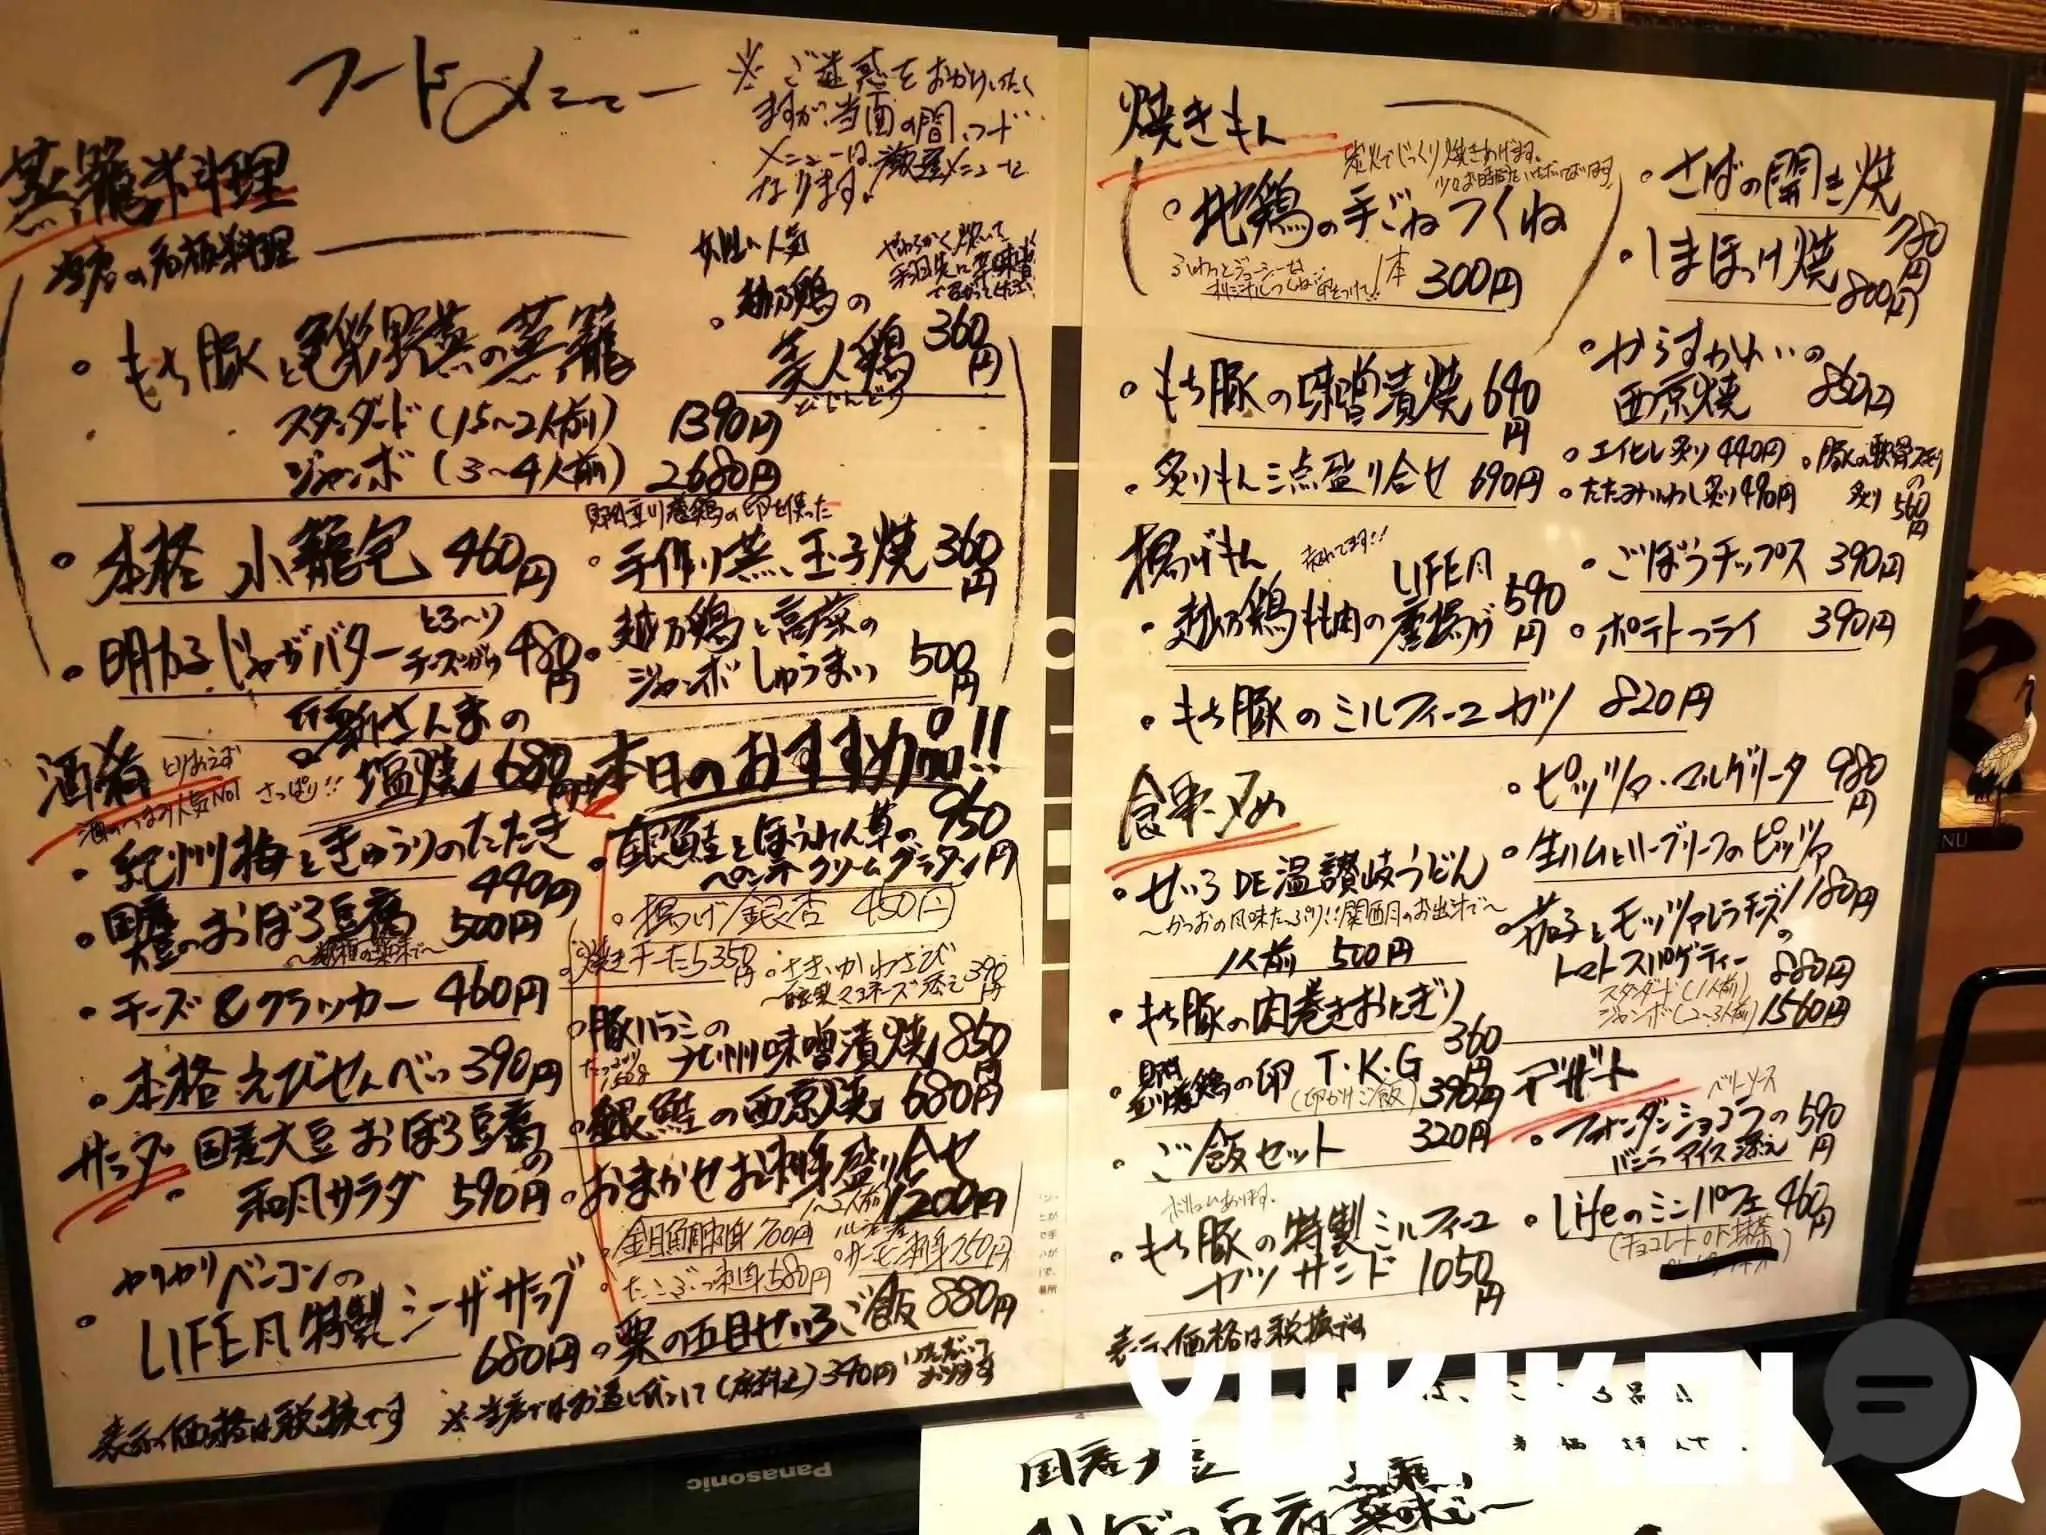 フードメニュー
※ご迷惑をおかけいたし
ますが、当面の間、フード
メニューは、厳選メニューに
なります。
蒸籠料理
当店の名板料理
女性に人気
・越乃鶏の
美人鶏 360円
びじんどり
・もち豚と彩野菜の蒸籠
スタンダード(1.5〜2人前) 1390円
ジャンボ(3〜4人前) 2680円
・本格小籠包 460円
の卵を使った
・手作り蒸し玉子焼 360円
・明太子じゃがバター 480円
とろ〜り
チーズがけ
・越乃鶏と高菜の
ジャンボしゅうまい 500円
酒肴
とりあえず
酒のつまみ人気No1
さっぱり!!
さんまの
塩焼 680円
・紀州梅ときゅうりのたたき
440円
・国産
大豆のおぼろ豆腐 500円
・チーズ&クラッカー 460円
・本格えびせんべい 390円
サラダ
・国産大豆おぼろ豆腐の
和風サラダ 590円
・カリカリベーコンの
LIFE風特製シーザーサラダ
680円
表示価格は税抜です
本日のおすすめ品!!
・銀鮭とほうれん草の 950円
ペンネクリームグラタン
・揚げ銀杏 450円
・焼きチーたら 350円
・さきいかわさび
〜自家製マヨネーズ添え 390円
・豚ハラミの
たっぷり150g
九州味噌漬焼 850円
・銀鮭の西京焼 680円
・おまかせお刺身盛り合せ
1〜2人前 1200円
・金目鯛刺身 700円
・サーモン刺身 750円
・たこぶつ刺身 580円
・栗の五目せいろご飯 880円
※当店ではお通し代として(席料込)390円 いただいて
おります
焼きもん
炭火でじっくり焼きあげます。
少々お時間をいただいております。
・地鶏の手ごねつくね
ふわっとジューシーな
オリジナルつくね 卵をつけて!!
1本 300円
・もち豚の味噌漬焼 640円
・炙りもん三点盛り合せ 690円
・さばの開き焼
780円
・しまほっけ焼 800円
・からすかれいの
西京焼 850円
・エイヒレ炙り 440円
・豚の軟骨スモークの
炙り 560円
・たたみいわし炙り 490円
揚げもん
売れてます!!
LIFE風
・越乃鶏もも肉の唐揚げ 590円
・ごぼうチップス 390円
・ポテトフライ 390円
・もち豚のミルフィーユカツ 820円
食事・〆め
・せいろDE温讃岐うどん
〜かつおの風味た〜ぷり!!関西風のお出汁で〜
1人前 500円
・もち豚の肉巻きおにぎり
360円
の卵 T・K・G
(卵かけご飯) 390円
・ご飯セット 320円
ボリュームあります。
・もち豚の特製ミルフィーユ
カツサンド 1050円
表示価格は税抜です
・ピッツァ・マルゲリータ 980円
・生ハムとハーブリーフのピッツァ
1180円
・茄子とモッツァレラチーズの
トマトスパゲティー 880円
スタンダード(1人前)
ジャンボ(2〜3人前) 1560円
デザート
ベリーソース
・フォンダンショコラの 590円
バニラアイス添え
・Lifeのミニパフェ 460円
(チョコレートor抹茶
Panasonic
YUKIKEI
国産大豆